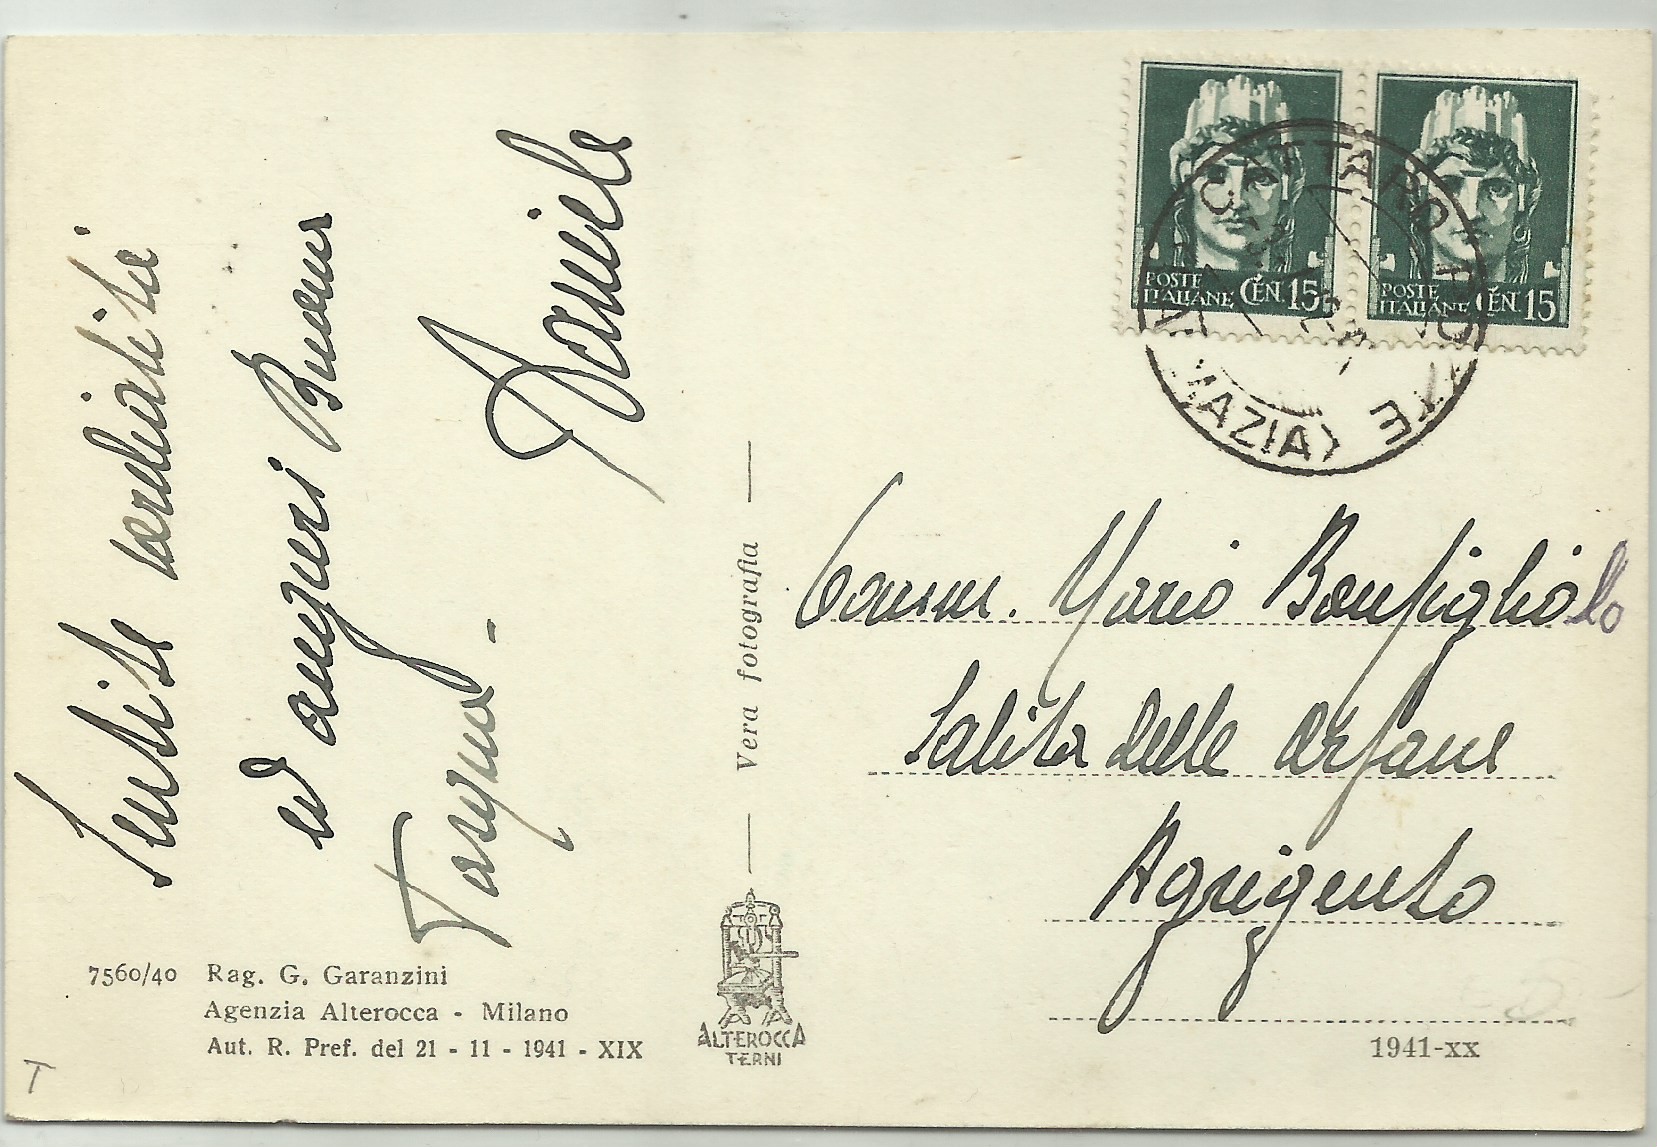 Sentite cordialità
ed auguri Buona
Pasqua -
Daniele
7560/40 Rag. G. Garanzini
Agenzia Alterocca - Milano
Aut. R. Pref. del 21 - 11 - 1941 - XIX
T
Vera fotografia
ALTEROCCA
TERNI
POSTE
ITALIANE CEN. 15
POSTE
ITALIANE CEN. 15
CATTARO
MAZIA)
Comm. Mario Bonfiglio lo
Salita delle Orfane
Agrigento
1941-XX